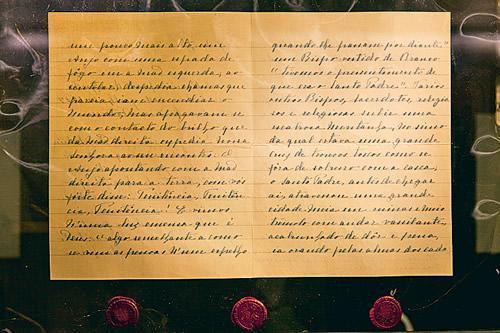 um pouco mais alto, um
Anjo com uma espada de
fôgo em a mão esquerda; ao
centilar, despedia chamas que
parecia iam encendiar o
mundo; mas apagavam-se
com o contacto do brilho que
da mão direita expedia Nossa
Senhora ao seu encontro: O
Anjo apontando com a mão
direita para a terra, com vós
forte disse: Penitência, Penitên-
cia, Penitência! E vimos
N'uma luz emensa que é
Deus: "algo semelhante a como
se vem as pessoas N'um espelho
quando lhe passam por diante"
um Bispo vestido de Branco
"tivemos o pressentimento de
que era o Santo Padre". Varios
outros Bispos, sacerdotes, religio
sos e religiosas subir uma
escabrosa Montanha, no cimo
da qual estava uma grande
cruz de troncos toscos como se
fôra de sobreiro com a casca;
o Santo Padre, antes de chegar
aí, atravessou uma grande
cidade meia em ruinas e meio
tremulo com andar vacilante,
acabrunhado de dôr e pena,
ia orando pelas almas dos cada